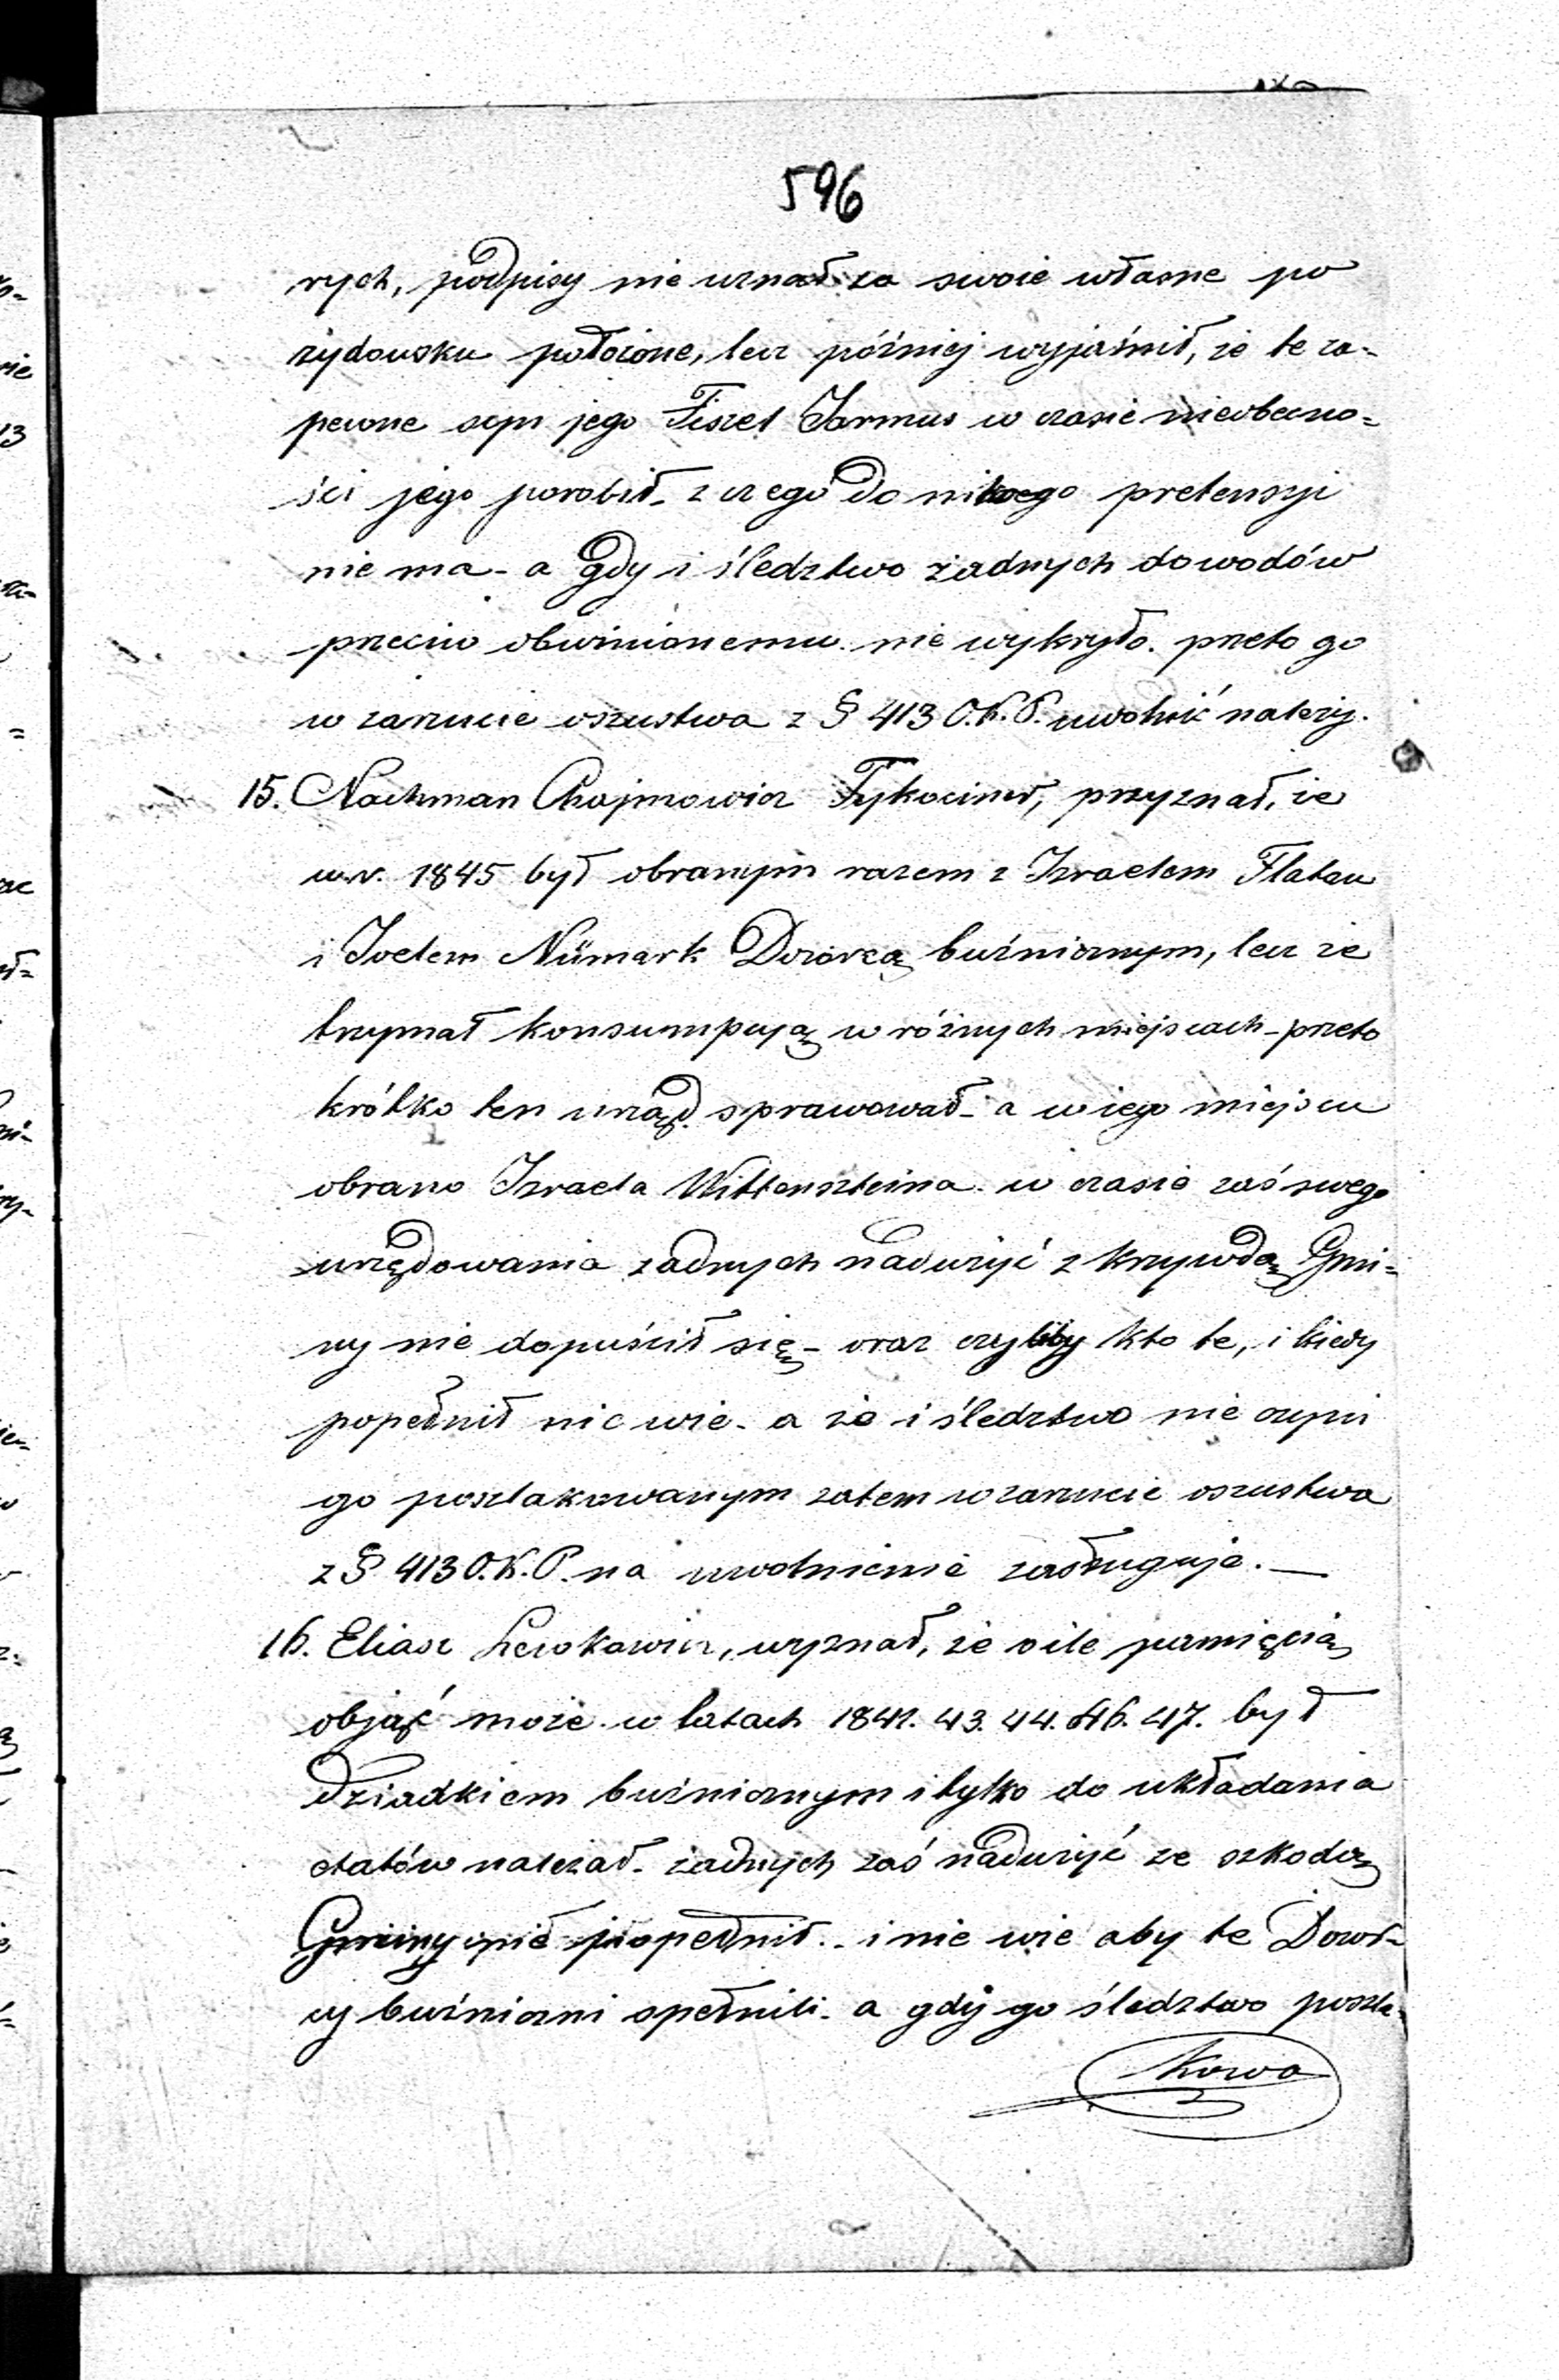 596
rych, podpisy nie uznał za swoie własne po
żydowsku położone, lecz później wyjaśnił, że te za-
pewne syn jego Fiszel Jarmus w czasie nieobecno-
ści jego porobił - z czego do nikogo pretensyi
nie ma - a gdy i śledztwo żadnych dowodów
przeciw obwinionemu nie wykryło. przeto go
w zarzucie oszustwa z § 413 O.K.P. uwolnić należy.
15. Nachman Chajmowicz Tykociner, przyznał, że
w r. 1845 był obranym razem z Izraelem Flatau
i Joelem Nümark Dozorcą bużnicznym, lecz że
trzymał konsumpcyą w różnych miejscach - przeto
krótko ten urząd sprawował - a w iego miejscu
obrano Izraela Wittenszteina. w czasie zaś swego
urzędowania żadnych nadużyć z krzywdą Gmi-
ny nie dopuścił się - oraz czyliby kto te, i kiedy
popełnił nic wie - a że i śledztwo nie czyni
go poszlakowanym zatem w zarzucie oszustwa
z § 413 O.K.P. na uwolnienie zasługuje. —
16. Eliasz Lewkowicz, wyznał, że o ile pamięcią
objąć może w latach 1841. 43. 44. 46. 47. był
Dziadkiem bużnicznym i tylko do układania
etatów należał - żadnych zaś nadużyć ze szkodą
Gminy nie popełnił - i nie wie aby te Dozor-
cy bużniczni spełnili - a gdy go śledztwo poszla-
kowa